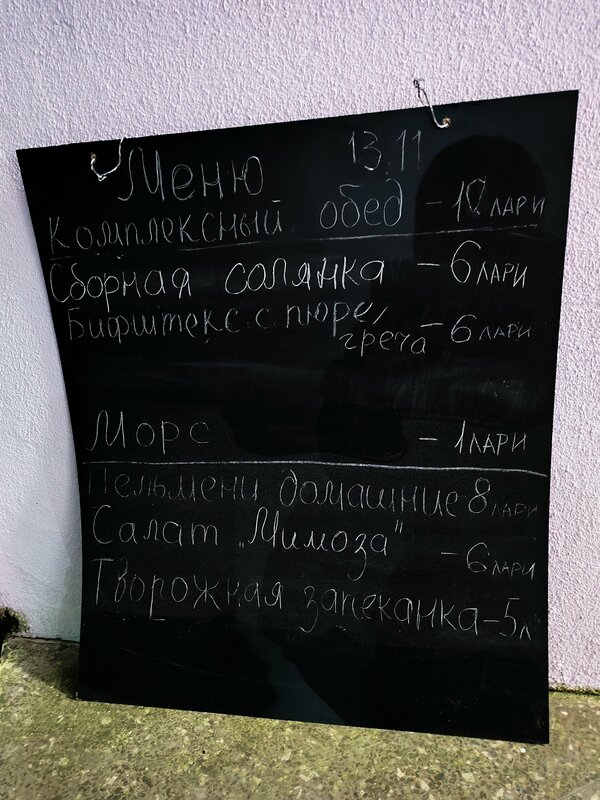 Меню 13.11
Комплексный обед - 10 лари
Сборная солянка - 6 лари
Бифштекс с пюре/
греча - 6 лари
Морс - 1 лари
Пельмени домашние - 8 лари
Салат „Мимоза" - 6 лари
Творожная запеканка - 5 л